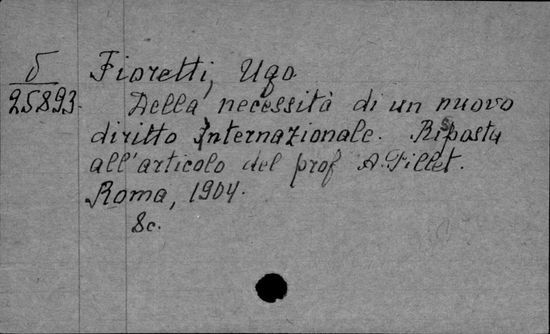 б
25893.
Fioretti, Ugo
Della necessità di un nuovo
diritto Internazionale. Risposta
all'articolo del prof A. Pillet.
Roma, 1904.
8c.